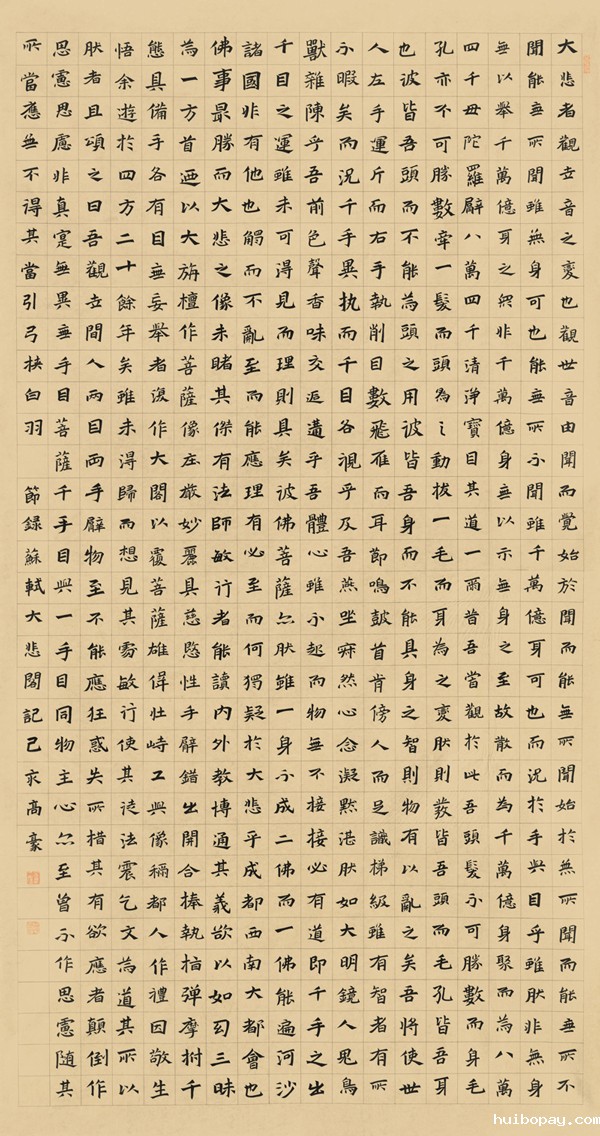 大悲者觀世音之變也觀世音由聞而覺始於聞而能無所聞始於無所聞而能無所不
聞能無所聞雖無身可也能無所不聞雖千萬億身可也而況於手與目乎雖然非無身
無以舉千萬億身之眾非千萬億身無以示無身之至故散而為千萬億身聚而為八萬
四千母陀羅臂八萬四千清淨寶目其道一爾昔吾嘗觀於此吾頭髮不可勝數而身毛
孔亦不可勝數牽一髮而頭為之動拔一毛而身為之變然則髮皆吾頭而毛孔皆吾身
也彼皆吾頭而不能為頭之用彼皆吾身而不能具身之智則物有以亂之矣吾將使世
人左手運斤而右手執削目數飛雁而耳節鳴鼓首肯傍人而足識梯級雖有智者有所
不暇矣而況千手異執而千目各視乎及吾燕坐寂然心念凝默湛然如大明鏡人鬼鳥
獸雜陳乎吾前色聲香味交遘乎吾體心雖不起而物無不接接必有道即千手之出
千目之運雖未可得見而理則具矣彼佛菩薩亦然雖一身不成二佛而一佛能遍河沙
諸國非有他也觸而不亂至而能應理有必至而何獨疑於大悲乎成都西南大都會也
佛事最勝而大悲之像未睹其傑有法師敏行者能讀內外教博通其義欲以如幻三昧
為一方首迺以大旃檀作菩薩像莊嚴妙麗具慈愍性手臂錯出開合捧執指彈摩拊千
態具備手各有目無妄舉者復作大閣以覆菩薩雄偉壯峙工與像稱都人作禮因敬生
悟余遊於四方二十餘年矣雖未得歸而想見其處敏行使其徒法震乞文為道其所以
然者且頌之曰吾觀世間人兩目兩手臂物至不能應狂惑失所措其有欲應者顛倒作
思慮思慮非真寔無異無手目菩薩千手目與一手目同物主心亦至曾不作思慮隨其
所當應無不得其當引弓挾白羽 節錄蘇軾大悲閣記己亥高豪
huibopay.com